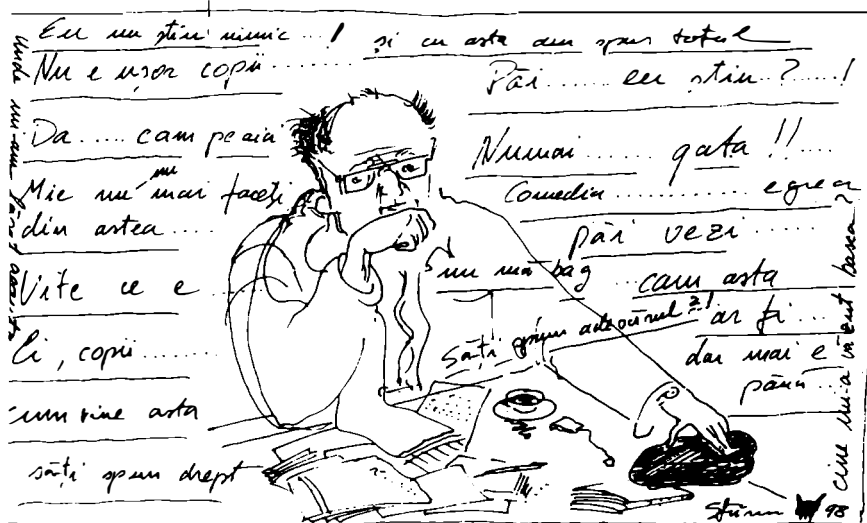 Eu nu știu nimic...! și cu asta am spus totul
Nu e ușor copii...
Păi.... eu știu?....!
Da..... cam pe aia
Numai...... gata!!
Mie nu nu mai faceți
din astea....
Comedia......... e grea
păi vezi.....
Uite ce e....
nu mă bag
cam asta
ar fi....
Ei, copii......
să-ți spun adevărul?!
dar mai e
până...
cum vine asta
să-ți spun drept
Unde mi-am
cine mi-a basca?
98